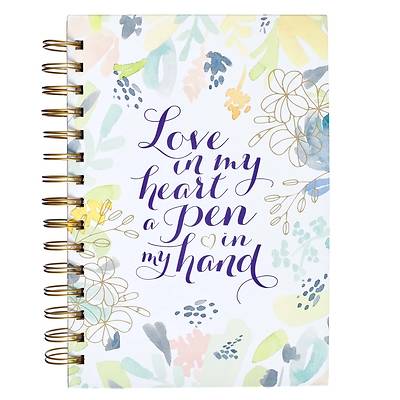 Love
in my
heart
a pen
in
my hand